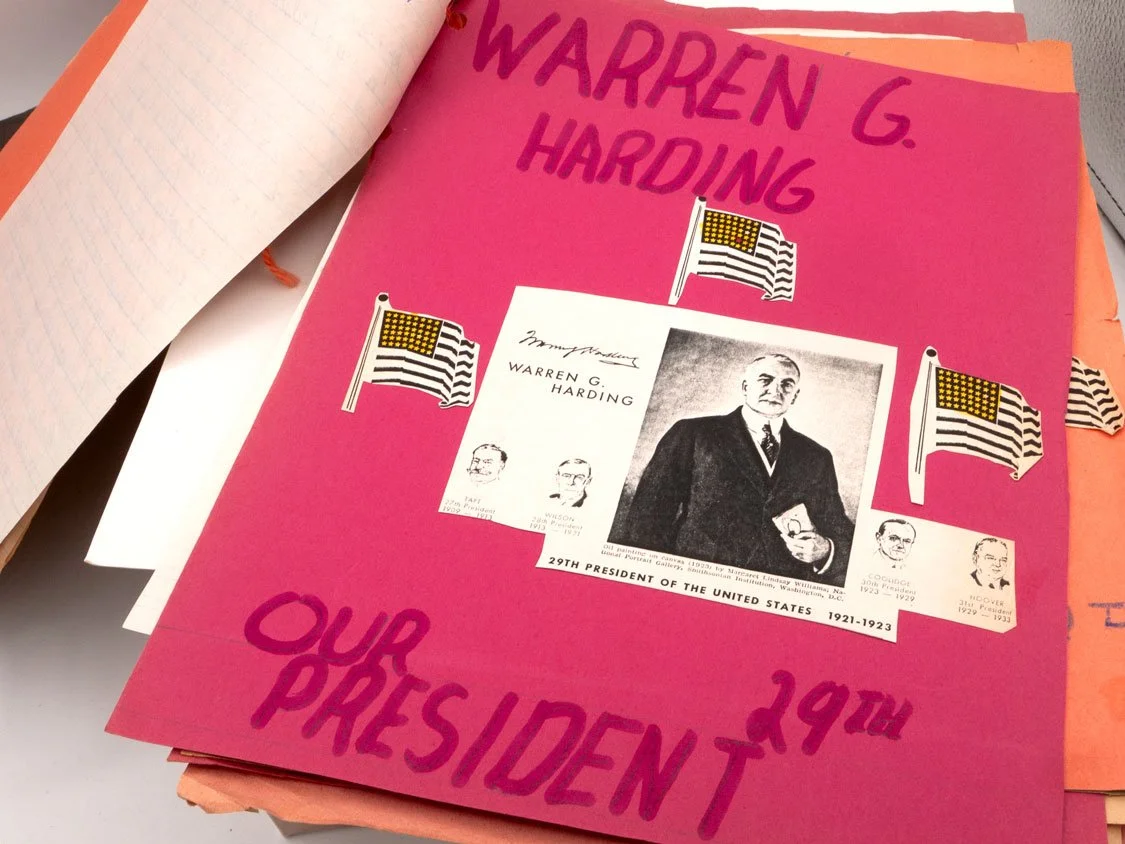 WARREN G.
HARDING
WARREN G.
HARDING
TAFT
27th President
1909 — 1913
WILSON
28th President
1913 — 1921
Oil painting on canvas (1923) by Margaret Lindsay Williams, Na-
tional Portrait Gallery, Smithsonian Institution, Washington, D.C.
29TH PRESIDENT OF THE UNITED STATES 1921-1923
COOLIDGE
30th President
1923 — 1929
HOOVER
31st President
1929 — 1933
OUR
PRESIDENT 29TH